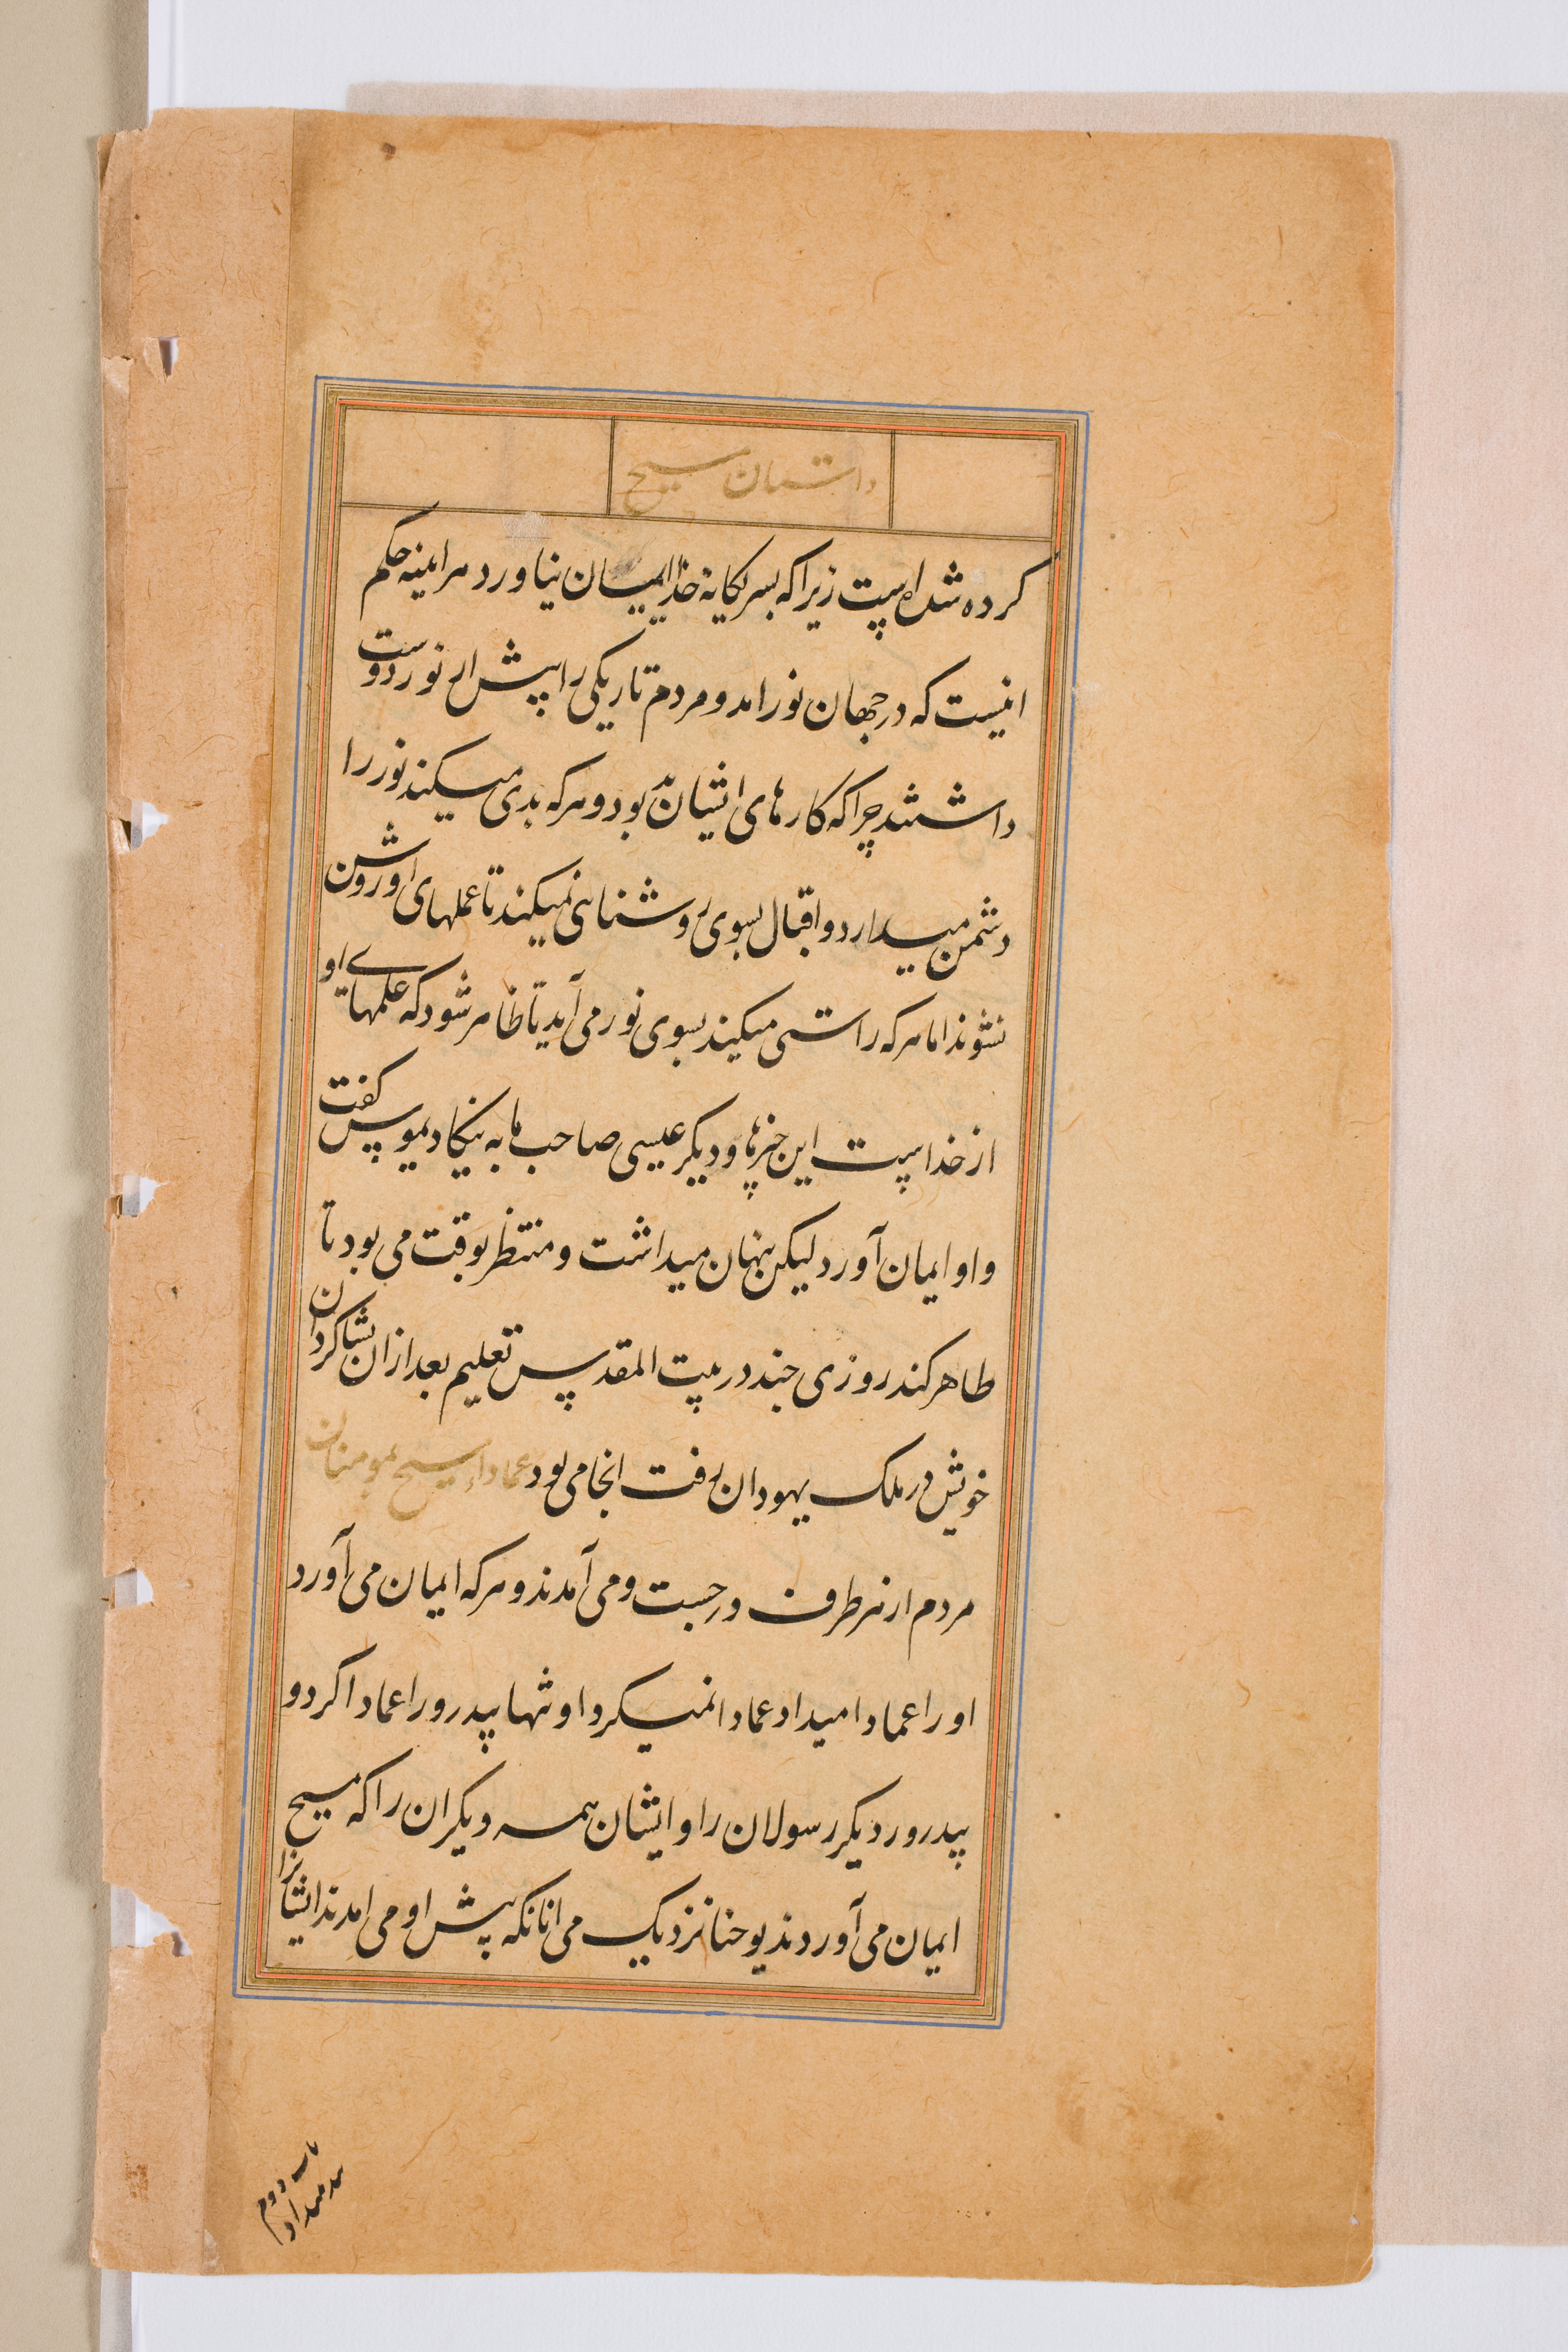 داستان مسیح
کرده شده است زیرا که بسر یکانه خدا ایمان نیاورد هراینه حکم
اینست که در جهان نور امد و مردم تاریکی را پیش از نور دوست
داشتند چرا که کارهای ایشان بد بود و هرکه بدی میکند نور را
دشمن میدارد و اقبال بسوی روشنایی نمیکند تا عملهای او روشن
نشوند اما هرکه راستی میکند بسوی نور می آید تا ظاهر شود که عملهای او
از خداست این جیزها و دیکر عیسی صاحب ما به نیکادیموس کفت
و او ایمان آورد لیکن پنهان میداشت و منتظر بوقت می بود تا
ظاهر کند روزی جند در بیت المقدس تعلیم بعد ازان بشاکردان
خویش در ملک یهودان رفت انجا می بود عماداء مسیح بمومنان
مردم از هر طرف در جست و می آمدند و هرکه ایمان می آورد
او را عمادا میداد عمادا نمیکرد او تنها پیدرو را عمادا کرد و
پیدرو دیکر رسولان را و ایشان همه دیکران را که مسیح
ایمان می آوردند یوحنا نزدیک می انانکه پیش او می امدند ایشانرا